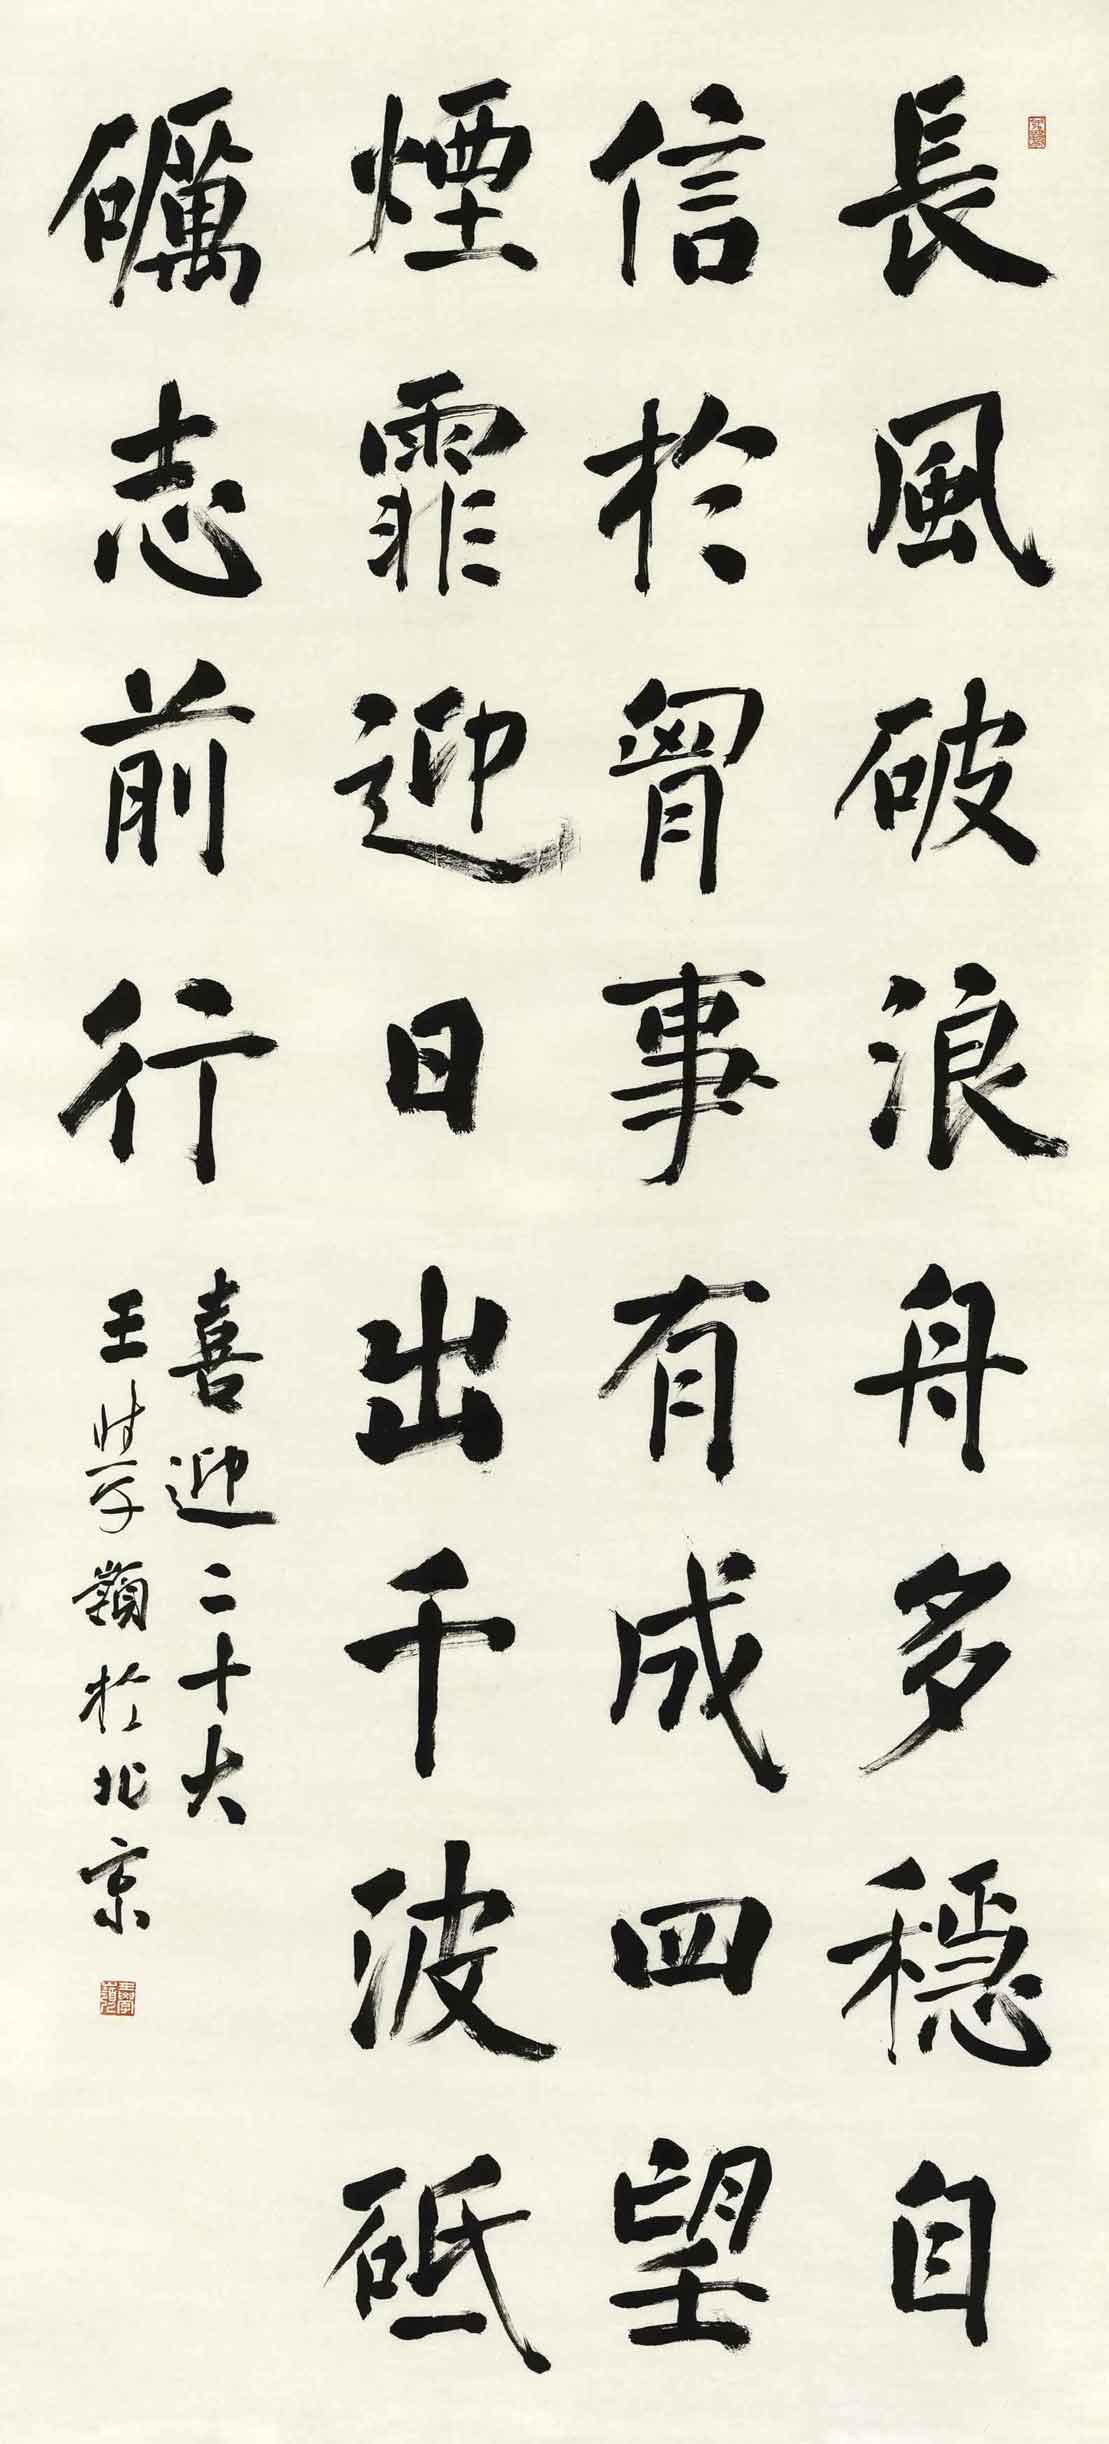 長風破浪舟多穩自
信於胷事有成四望
煙霏迎日出千波砥
礪志前行
喜迎二十大
王學嶺於北京